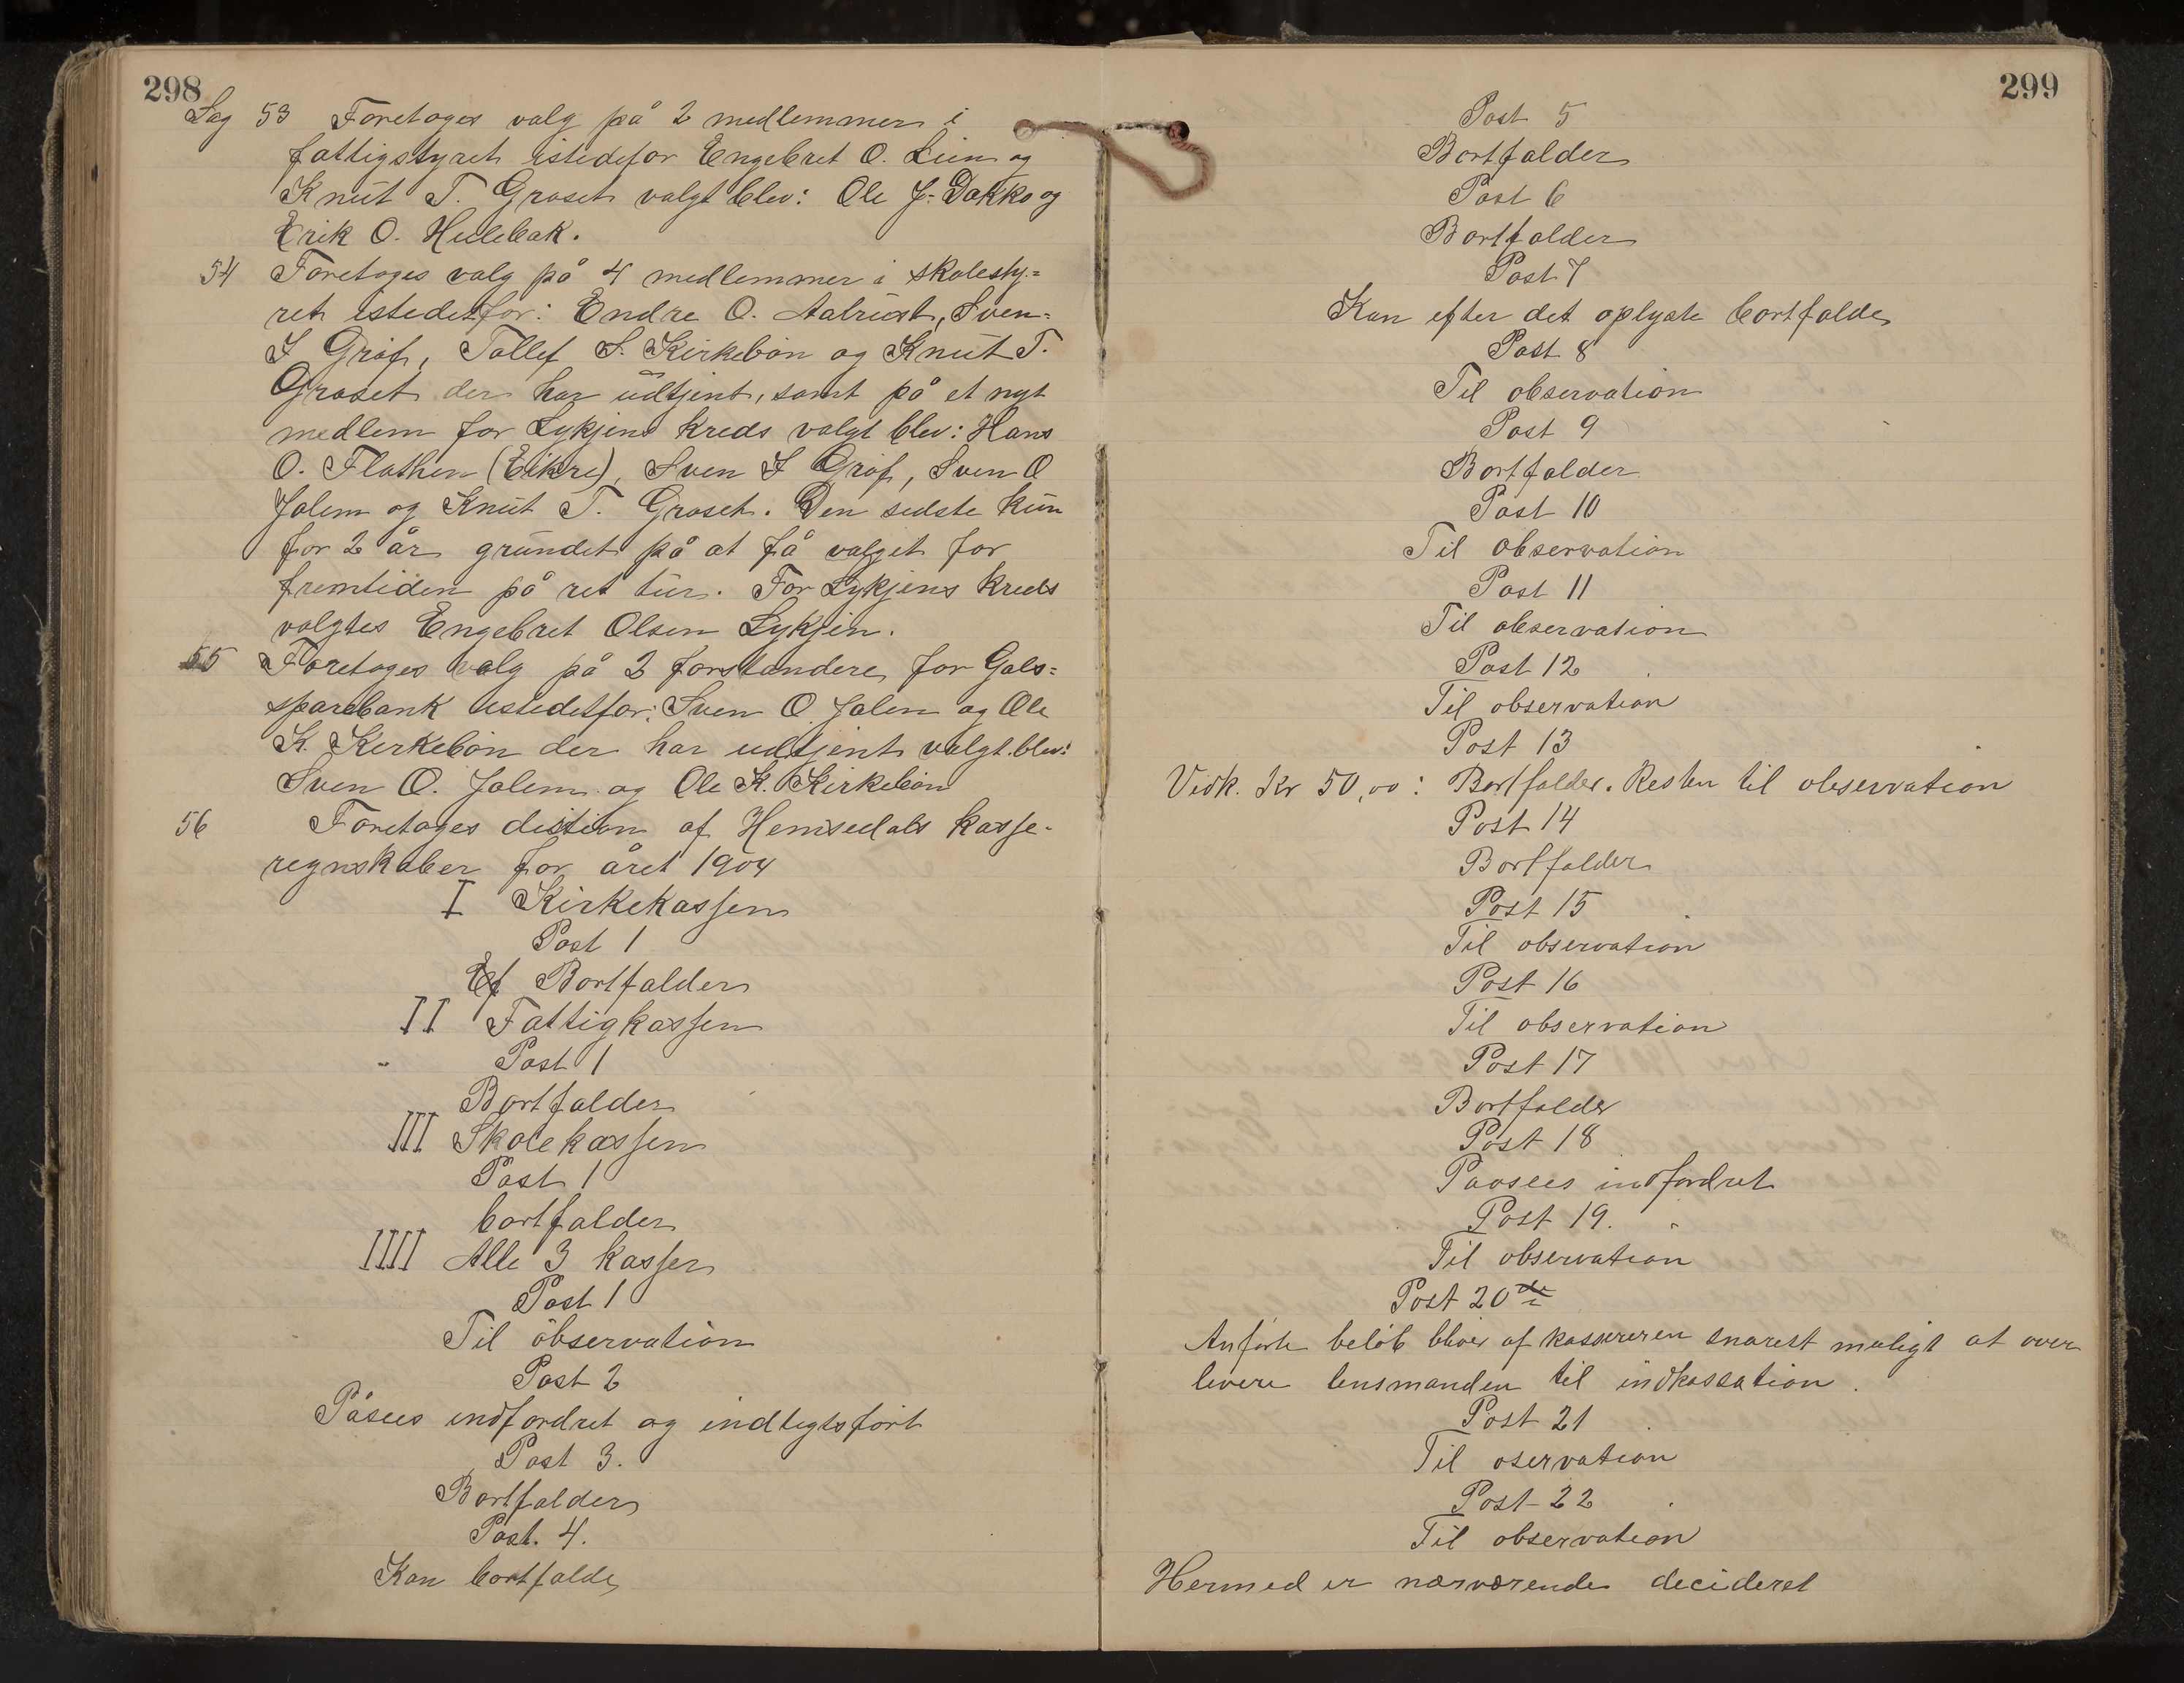 298
Sag 53 Foretages valg på 2 medlemmer i
fattigstyret istedefor Engebret O. Lien og
Knut T. Groset valgt blev: Ole J. Dokko og
Erik O. Hulebak.
54 Foretages valg på 4 medlemmer i skolesty=
ret istedetfor: Endre O. Aalrust, Sven
S Gröf, Tollef S. Kirkebön og Knut T.
Groset der har udtjent, samt på et nyt
medlem for Lykjens kreds valgt blev: Hans
O. Flathen (Eikre), Sven S Gröf, Sven O
Jolem og Knut T. Groset. Den sidste kun
for 2 år grundet på at få valget for
fremtiden på ret tur. For Lykjens kreds
valgtes Engebret Olsen Lykjen.
55 Foretages valg på 2 forstandere for Gols=
sparebank istedetfor: Sven O. Jolem og Ole
K. Kirkebön der har udtjent valgt blev:
Sven O. Jolem og Ole K. Kirkebön
56 Foretages distion af Hemsedals kasse-
regnskaber for året 1904
I Kirkekassen
Post 1
Ef Bortfalder
II Fattigkassen
Post 1
Bortfalder
III Skolekassen
Post 1
bortfalder
IIII Alle 3 kasser
Post 1
Til observation
Post 2
Påsees indfordret og indtegtsfört
Post 3.
Bortfalder
Post. 4.
Kan bortfalde
299
Post 5
Bortfalder
Post 6
Bortfalder
Post 7
Kan efter det oplyste bortfalde
Post 8
Til observation
Post 9
Bortfalder
Post 10
Til observation
Post 11
Til observation
Post 12
Til observation
Post 13
Vedk. Kr 50,00: Bortfalder. Resten til observation
Post 14
Bortfalder
Post 15
Til observation
Post 16
Til observation
Post 17
Bortfalder
Post 18
Paasees indfordret
Post 19.
Til observation
Post 20de
Anförte belöb bliver af kassereren snarest muligt at over
levere lensmanden til indkassation.
Post 21
Til oservation
Post 22
Til observation
Hermed er nærværende decideret